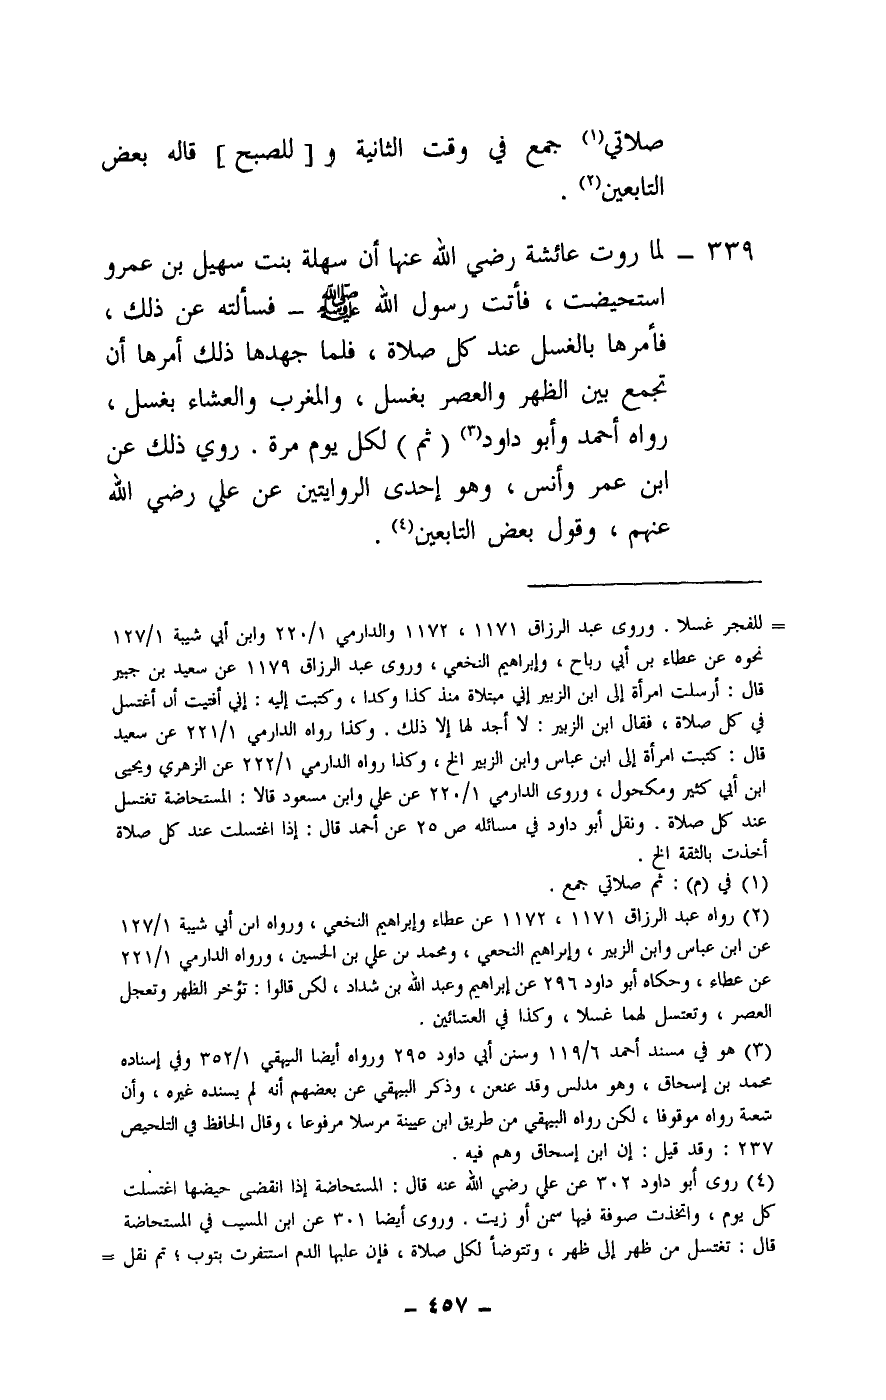 صلاتي(١) جمع في وقت الثانية و [ للصبح ] قاله بعض
التابعين(٢) .
٣٣٩ – لما روت عائشة رضي الله عنها أن سهلة بنت سهيل بن عمرو
استحيضت ، فأتت رسول الله ﷺ – فسألته عن ذلك ،
فأمرها بالغسل عند كل صلاة ، فلما جهدها ذلك أمرها أن
تجمع بين الظهر والعصر بغسل ، والمغرب والعشاء بغسل ،
رواه أحمد وأبو داود(٣) ( ثم ) لكل يوم مرة . روي ذلك عن
ابن عمر وأنس ، وهو إحدى الروايتين عن علي رضي الله
عنهم ، وقول بعض التابعين(٤) .
= للفجر غسلا . وروى عبد الرزاق ١١٧١ ، ١١٧٢ والدارمي ٢٢٠/١ وابن أبي شيبة ١٢٧/١
نحوه عن عطاء بن أبي رباح ، وإبراهيم النخعي ، وروى عبد الرزاق ١١٧٩ عن سعيد بن جبير
قال : أرسلت امرأة إلى ابن الزبير إني مبتلاة منذ كذا وكدا ، وكتبت إليه : إني أفتيت أن أغتسل
في كل صلاة ، فقال ابن الزبير : لا أجد لها إلا ذلك . وكذا رواه الدارمي ٢٢١/١ عن سعيد
قال : كتبت امرأة إلى ابن عباس وابن الزبير الخ ، وكذا رواه الدارمي ٢٢٢/١ عن الزهري ويحيى
ابن أبي كثير ومكحول ، وروى الدارمي ٢٢٠/١ عن علي وابن مسعود قالا : المستحاضة تغتسل
عند كل صلاة . ونقل أبو داود في مسائله ص ٢٥ عن أحمد قال : إذا اغتسلت عند كل صلاة
أخذت بالثقة الخ .
(١) في (م) : ثم صلاتي جمع .
(٢) رواه عبد الرزاق ١١٧١ ، ١١٧٢ عن عطاء وإبراهيم النخعي ، ورواه ابن أبي شيبة ١٢٧/١
عن ابن عباس وابن الزبير ، وإبراهيم النحعي ، ومحمد بن علي بن الحسين ، ورواه الدارمي ٢٢١/١
عن عطاء ، وحكاه أبو داود ٢٩٦ عن إبراهيم وعبد الله بن شداد ، لكن قالوا : تؤخر الظهر وتعجل
العصر ، وتغتسل لهما غسلا ، وكذا في العشائين .
(٣) هو في مسند أحمد ١١٩/٦ وسنن أبي داود ٢٩٥ ورواه أيضا البيهقي ٣٥٢/١ وفي إسناده
محمد بن إسحاق ، وهو مدلس وقد عنعن ، وذكر البيهقي عن بعضهم أنه لم يسنده غيره ، وأن
شعبة رواه موقوفا ، لكن رواه البيهقي من طريق ابن عيينة مرسلا مرفوعا ، وقال الحافظ في التلخيص
٢٣٧ : وقد قيل : إن ابن إسحاق وهم فيه .
(٤) روى أبو داود ٣٠٢ عن علي رضي الله عنه قال : المستحاضة إذا انقضى حيضها اغتسلت
كل يوم ، واتخذت صوفة فيها سمن أو زيت . وروى أيضا ٣٠١ عن ابن المسيب في المستحاضة
قال : تغتسل من ظهر إلى ظهر ، وتتوضأ لكل صلاة ، فإن غلبها الدم استثفرت بثوب ؛ ثم نقل =
– ٤٥٧ –